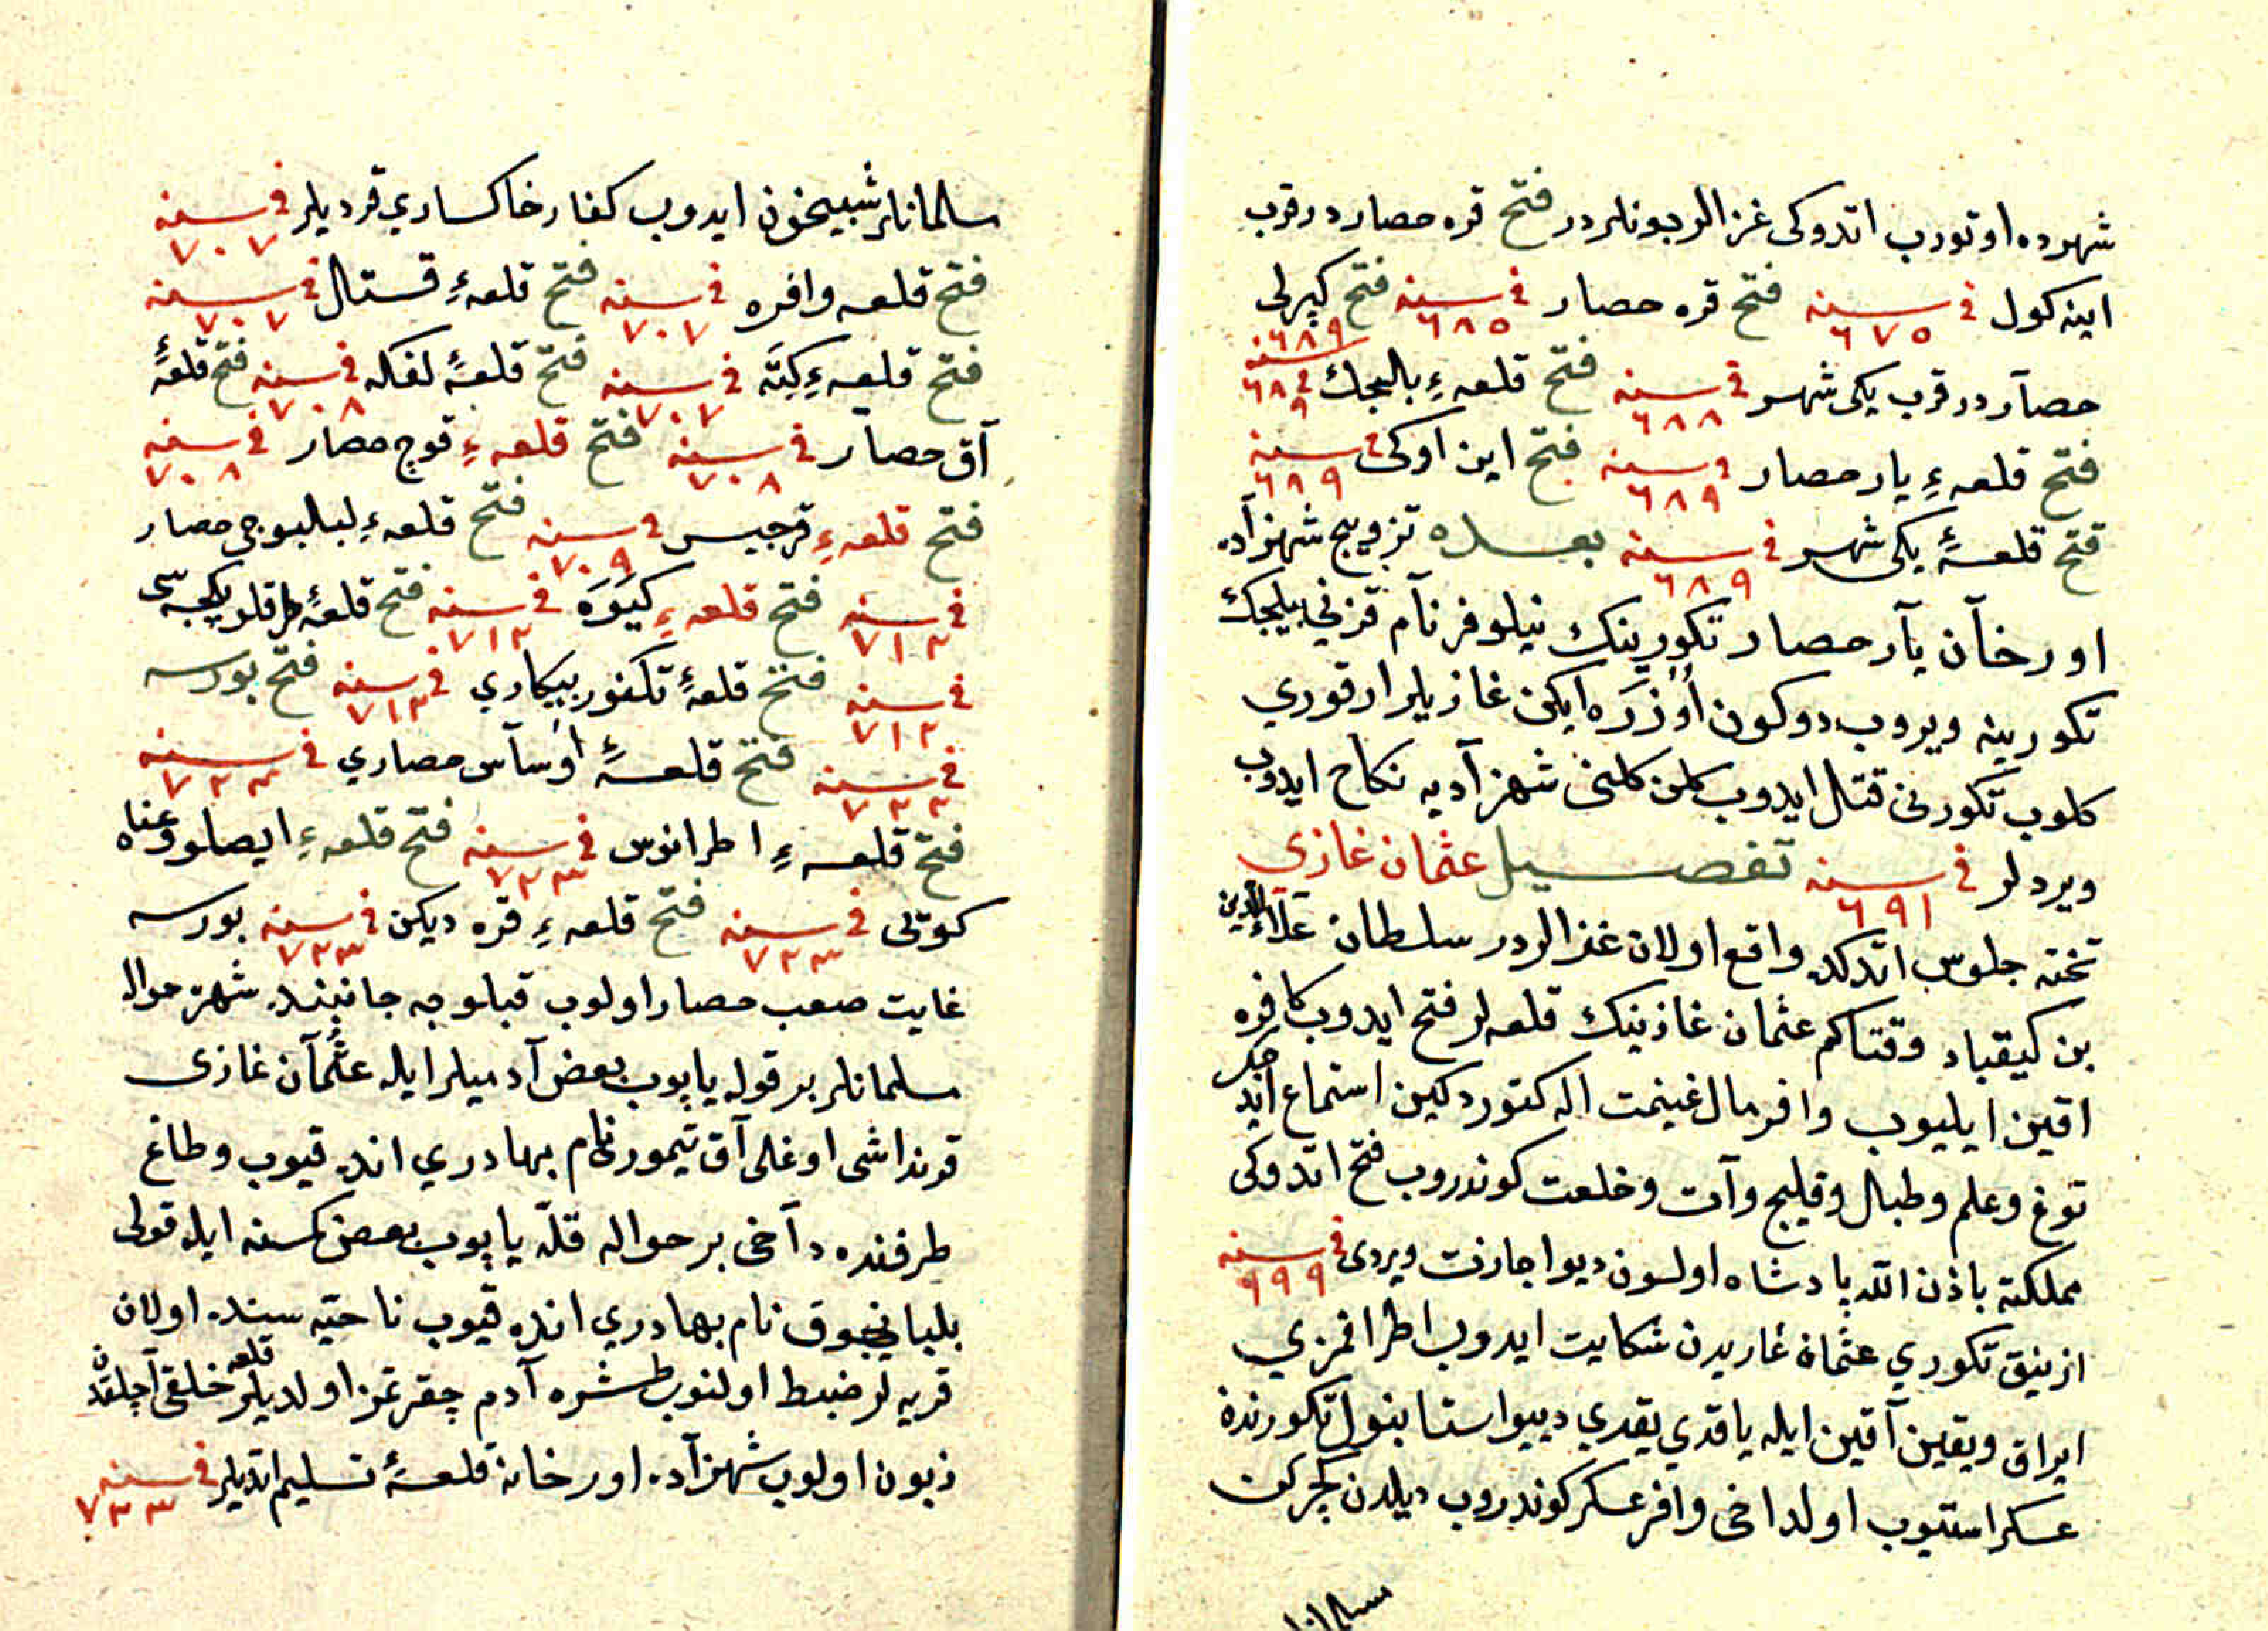 شهرده اوتورب اتدوكى غزالر بونلردر فتح قره حصار در قرب
اينه كول فى سنه ٦٧٥ فتح قره حصار فى سنه ٦٨٥ فتح كپرلى ٦٨٩
حصار در قرب يكى شهر فى سنه ٦٨٨ فتح قلعهء بالهجك فى سنه ٦٨٩
فتح قلعهء يار حصار فى سنه ٦٨٩ فتح اين اوكى فى سنه ٦٨٩
فتح قلعهٔ يكى شهر فى سنه ٦٨٩ بعده تزويج شهزآده
اورخآن يآر حصار تكورينك نيلوفر نآم قزني بيلجك
تكورينه ويروب دوكون اُوُزرَه ايكن غازيلر ارقوري
كلوب تكورنى قتال ايدوب كلن كلنى شهزآديه نكاح ايدوب
ويردلر فى سنه ٦٩١ تفصيل عثمان غازى
تخته جلوس اتدكده واقع اولان غزالردر سلطان علاء الدين
بن كيقباد وقتاكم عثمان غازينك قلعه لر فتح ايدوب كافره
اقين ايليوب وافر مال غنيمت اله كتوردكين استماع اتد
توغ وعلم وطبال وقليج وآت وخلعت كوندروب فتح اتدوكى
مملكته باذن الله پادشاه اولسون ديو اجازت ويردى فى سنه ٦٩٩
ازنيق تكوري عثمان غازيدن شكايت ايدوب اطرافمزي
ايراق ويقين آقين ايله ياقدي يقدي دييو استانبول تكورندن
عسكر استيوب اولداخى وافر عسكر كوندروب ديلدن كچركن
مسلمانلر
مسلمانلر شبيخون ايدوب كفار خاكساري قرديلر فى سنه ٧٠٧
فتح قلعه وافره فى سنه ٧٠٧ فتح قلعهءِ قستال فى سنه ٧٠٧
فتح قلعهءِ كِتَه فى سنه ٧٠٧ فتح قلعهٔ لفكه فى سنه ٧٠٨ فتح قلعهٔ
آق حصآر فى سنه ٧٠٨ فتح قلعهءِ قوج حصار فى سنه ٧٠٨
فتح قلعهءِ قرجيس فى سنه ٧٠٩ فتح قلعهءِ لبالبوجى حصار
فى سنه ٧١٢ فتح قلعهءِ كيَوَه فى سنه ٧١٢ فتح قلعهٔ طرقلو يكيجه سى
فى سنه ٧١٢ فتح قلعهٔ تكفور بيكاري فى سنه ٧١٢ فتح بورسه
فى سنه ٧٢٢ فتح قلعهٔ اوسآس حصاري فى سنه ٧٢٣
فتح قلعهءِ اطرانوس فى سنه ٧٢٣ فتح قلعهءِ ايصلو وعناه
كوتلى فى سنه ٧٢٣ فتح قلعهءِ قره ديكن فى سنه ٧٢٣ بورسه
غايت صعب حصار اولوب قبلوجه جانبنده شهره حواله
مسلمانلر بر قوله ياپوب بعض آدميلر ايله عثمآن غازى
قرنداشى اوغلى آق تيمور نام بهادري انده قيوب وطاغ
طرفنده دآخى بر حواله قلّه ياپوب بعض كسنه ايله قولى
بلبانجوق نام بهادري انده قيوب ناحيه سنده اولان
قريه لر ضبط اولنوب طشره آدم چقرتمز اولديلر قلعه خلقى آچلقدن
زبون اولوب شهزآده اورخانه قلعهٔ تسليم اتديلر فى سنه ٧٣٣